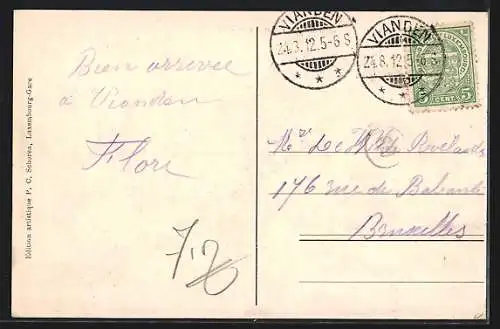 VIANDEN
24.8.12.5-6 S
VIANDEN
24.8.12.5-6 S
LUXEMBOURG
5 CENT. 5
Bien arrivée
à Vianden
Flore
Edition artistique P. C. Schoren, Luxembourg-Gare
Mr De
176 rue de
Bruxelles
7,2